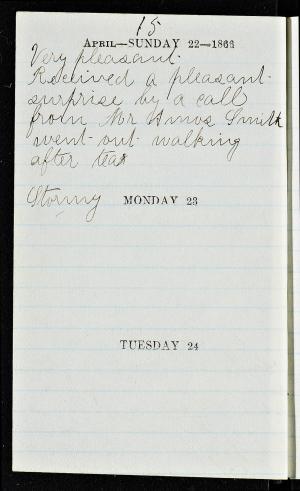 15
APRIL—SUNDAY 22—1866
Very pleasant.
Received a pleasant
surprise by a call
from Mr Amos Smith
went out walking
after tea
Stormy MONDAY 23
TUESDAY 24